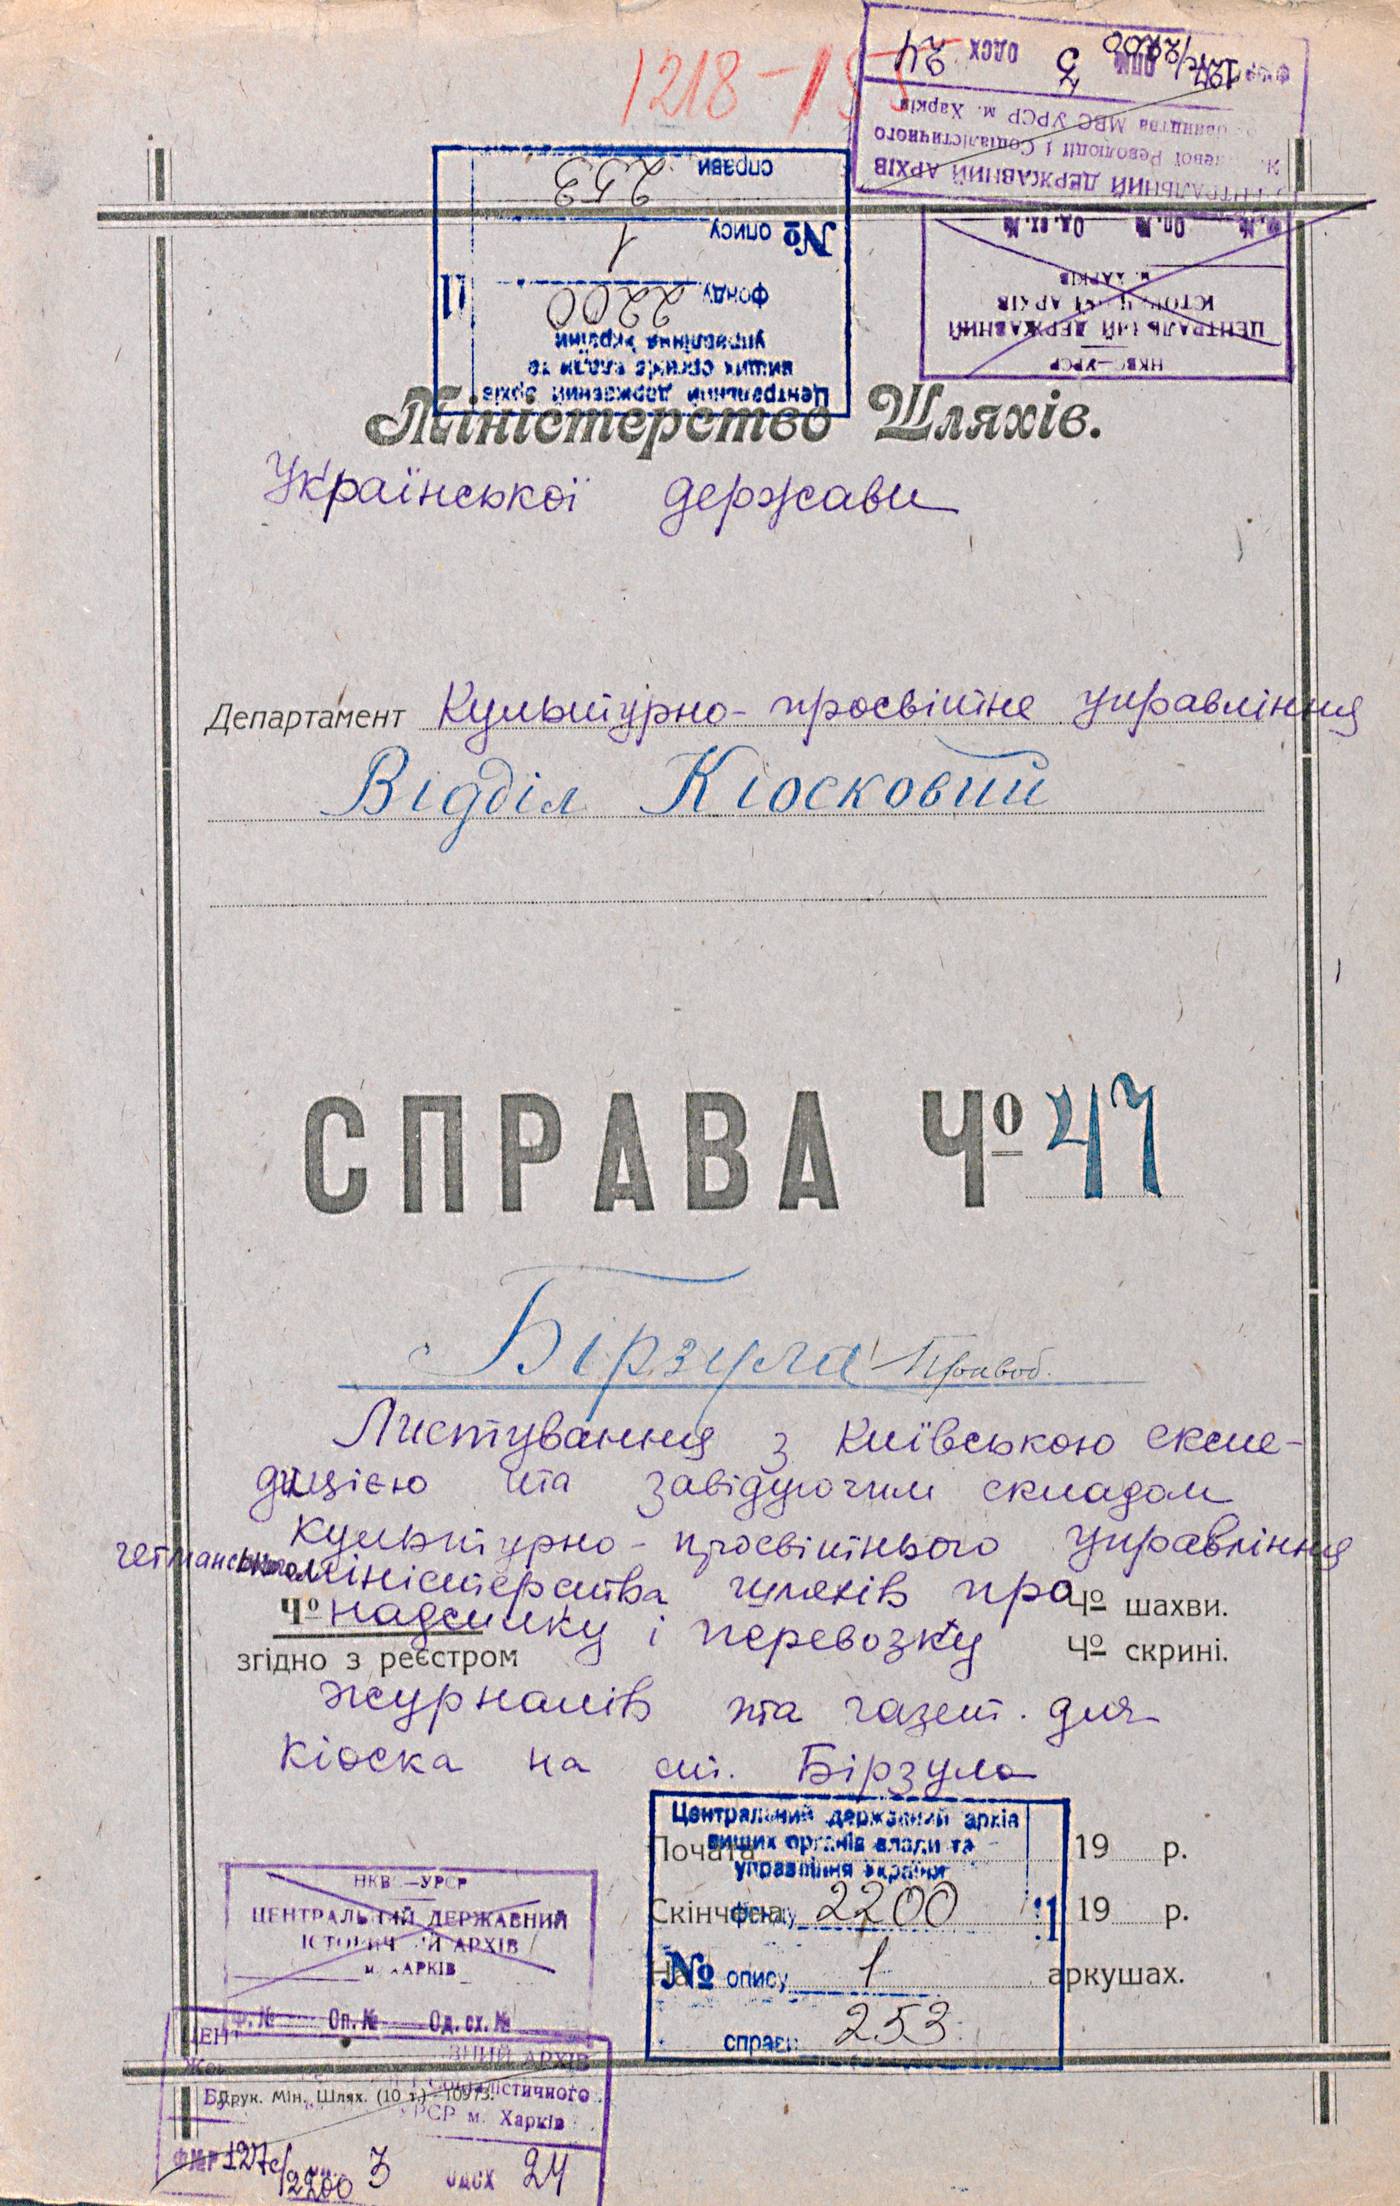 1218-195
ФОНД 127с/2200 ОПИС 3 ОДСХ 24
ЦЕНТРАЛЬНИЙ ДЕРЖАВНИЙ АРХІВ
Революції і Соціалістичного
МВС УРСР м. Харків
Центральний державний архів
вищих органів влади та
управління України
фонду 2200
№ опису 1
справи 253
НКВС—УРСР
ЦЕНТРАЛЬНИЙ ДЕРЖАВНИЙ
ІСТОРИЧНИЙ АРХІВ
м. ХАРКІВ
Ф. № Оп. № Од. сх. №
Міністерство Шляхів.
Української держави
Департамент Культурно-просвітне управління
Відділ Кіосковий
СПРАВА Чо 47
Бірзула Правоб.
Листування з Київською експе-
дицією та завідуючим складом
культурно-просвітнього управління
гетманського міністерства шляхів про
надсилку і перевозку
журналів та газет для
кіоска на ст. Бірзула
Чо
згідно з реєстром
Чо шахви.
Чо скрині.
Почата 19 р.
Скінчена 19 р.
На аркушах.
Центральний державний архів
вищих органів влади та
управління України
фонду 2200
№ опису 1
справи 253
НКВС—УРСР
ЦЕНТРАЛЬНИЙ ДЕРЖАВНИЙ
ІСТОРИЧНИЙ АРХІВ
м. ХАРКІВ
Ф. № Оп. № Од. сх. №
АРХІВ
Соціалістичного
УРСР м. Харків
127с/2200 3 ОДСХ 24
Друк. Мін. Шлях. (10 т.) 10973.